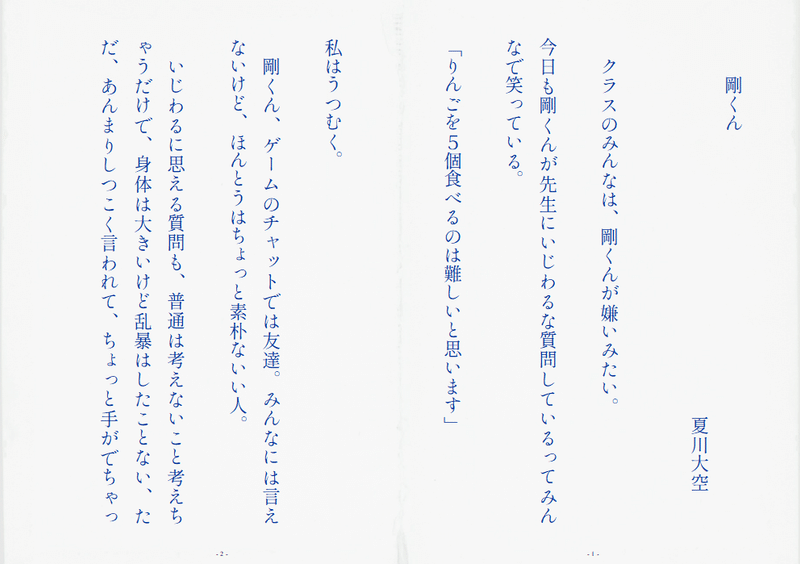 剛くん
夏川大空
クラスのみんなは、剛くんが嫌いみたい。
今日も剛くんが先生にいじわるな質問しているってみん
なで笑っている。
「りんごを５個食べるのは難しいと思います」
- 1 -
私はうつむく。
剛くん、ゲームのチャットでは友達。みんなには言え
ないけど、ほんとうはちょっと素朴ないい人。
いじわるに思える質問も、普通は考えないこと考えち
ゃうだけで、身体は大きいけど乱暴はしたことない、た
だ、あんまりしつこく言われて、ちょっと手がでちゃっ
- 2 -